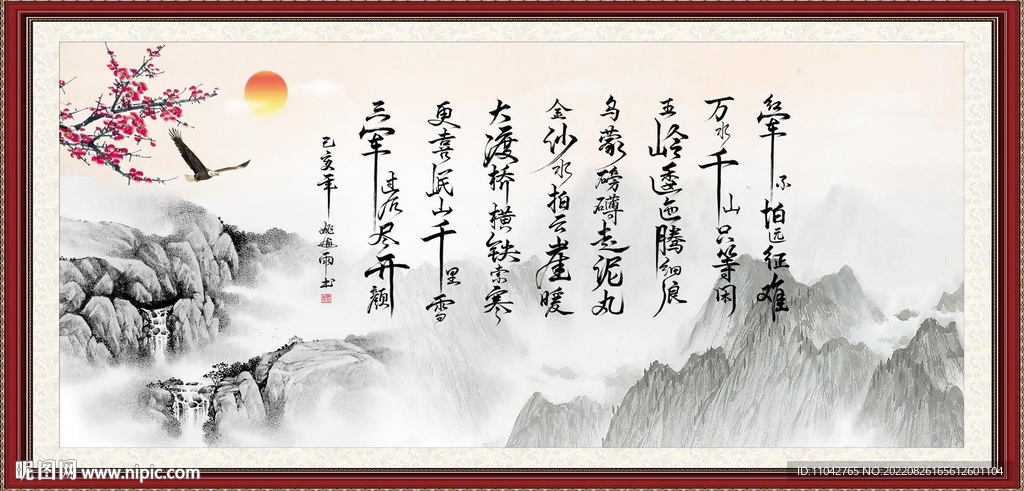 红军不怕远征难
万水千山只等闲
五岭逶迤腾细浪
乌蒙磅礴走泥丸
金沙水拍云崖暖
大渡桥横铁索寒
更喜岷山千里雪
三军过后尽开颜
己亥年 姚 雨书
昵图网 www.nipic.com
ID:11042765 NO:20220826165612601104